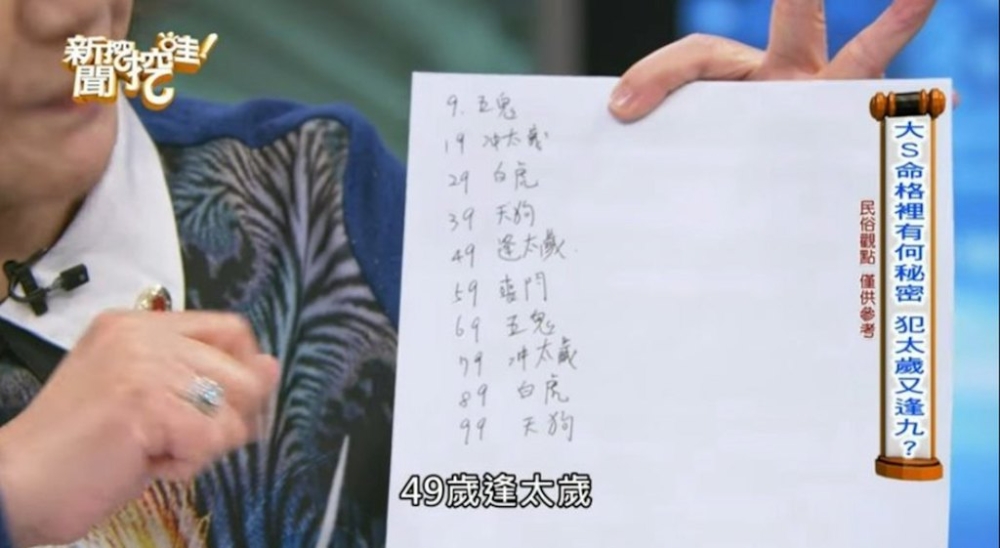 新聞挖挖哇!
9. 五鬼
19 冲太歲
29 白虎
39 天狗
49 逢太歲
59 喪門
69 五鬼
79 冲太歲
89 白虎
99 天狗
大S命格裡有何秘密 犯太歲又逢九?
民俗觀點 僅供參考
49歲逢太歲